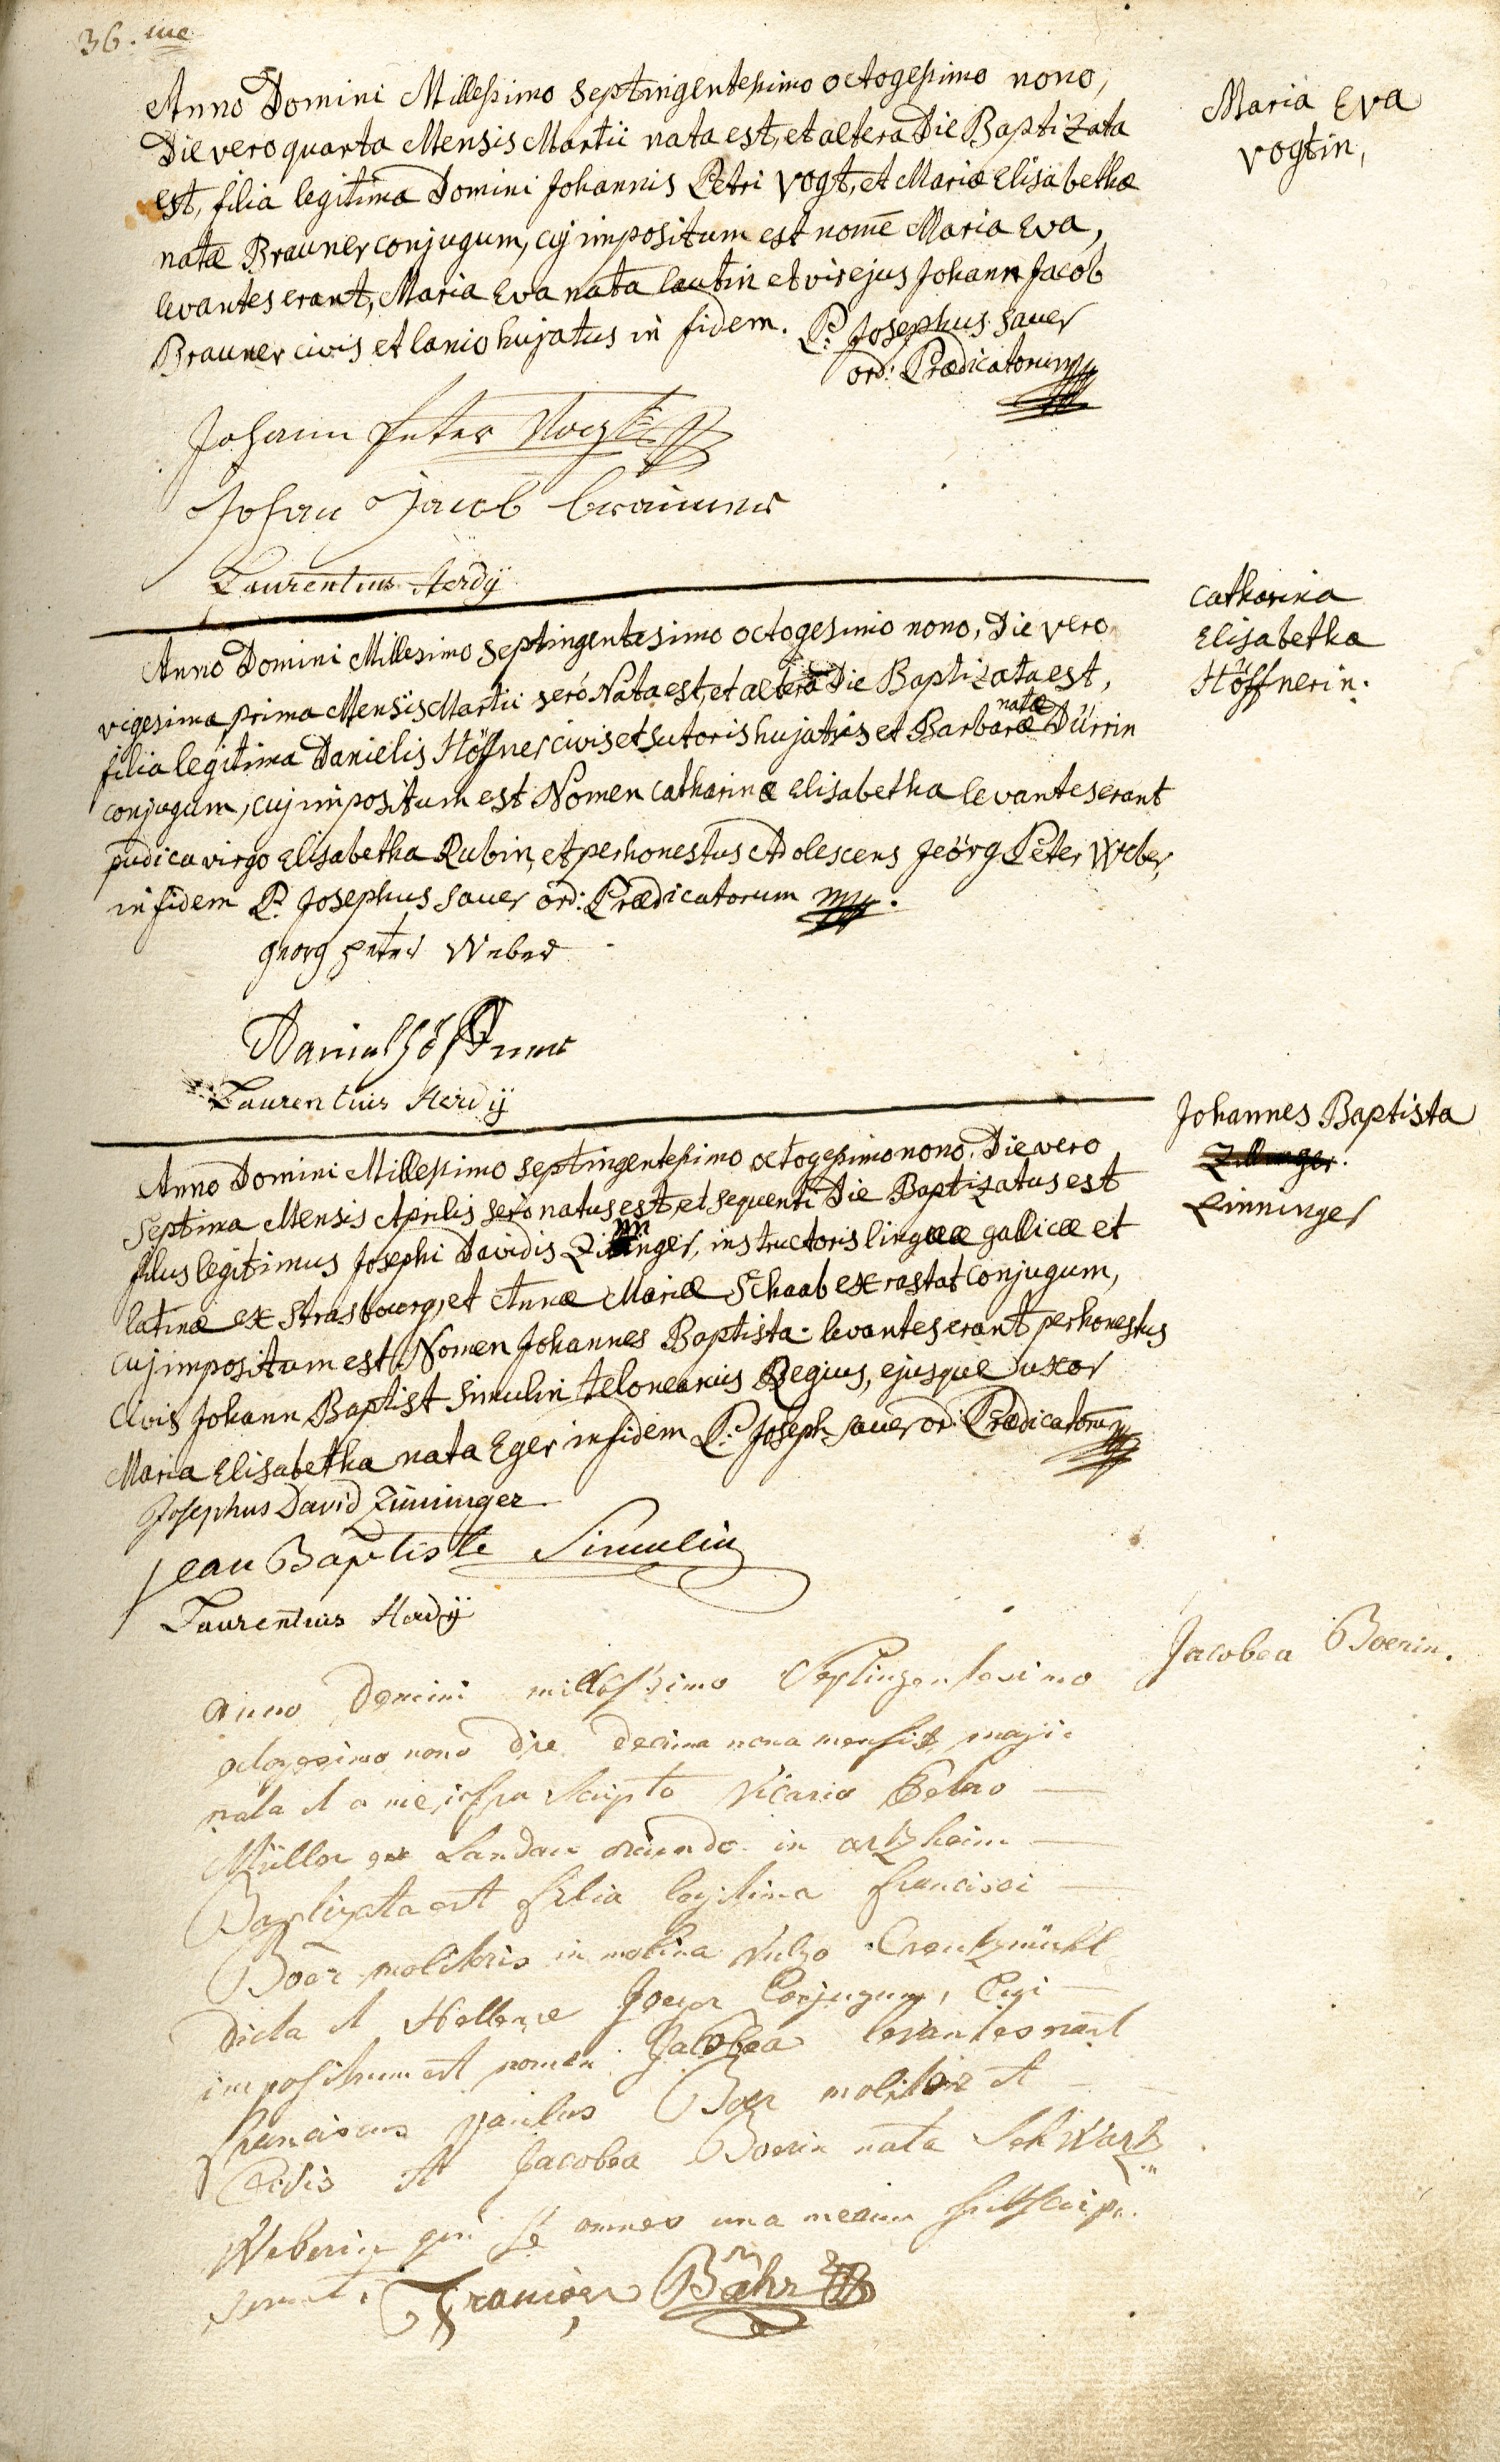 36. me
Anno Domini Millesimo septingentesimo octogesimo nono,
Die vero quarta Mensis Martii nata est, et altera Die Baptizata
est, filia legitima Domini Johannis Petri Vogt, et Mariæ Elisabethæ
natæ Brauner conjugum, cuj impositum est nomē Maria Eva,
levantes erant, Maria Eva nata lautin et vir ejus Johann Jacob
Brauner civis et lanio hujatus in fidem. P: Josephus Sauer
ord: Prædicatorum
Maria Eva
Vogtin,
Johann Peter Vogt
Johan Jacob brauner
Laurentius Herdÿ
Anno Domini Millesimo Septingentesimo octogesimo nono, Die vero
vigesima prima Mensis Martii seró Nata est, et altera Die Baptizata est,
natæ
filia legitima Danielis Höffner civis et sutoris hujatis et Barbaræ Dürrin
conjugum, cuj impositum est Nomen Catharinæ Elisabetha levantes erant
pudica virgo Elisabetha Rubin, et perhonestus Adolescens Jeörg Peter Weber,
in fidem P. Josephus Sauer ord: Prædicatorum
Catharina
Elisabetha
Höffnerin.
georg peter Weber
Daniel Höffner
Laurentius Herdÿ
Anno Domini Millesimo septingentesimo octogesimo nono. Die vero
Septima Mensis Aprilis serò natus est, et sequenti Die Baptizatus est
filius legitimus Josephi Davidis Zinninger, instructoris linguæ gallicæ et
latinæ ex Strasbourg, et Annæ Mariæ Schaab ex rastat conjugum,
cuj impositum est Nomen Johannes Baptista. levantes erant perhonestus
Civis Johann Baptist Simulin telonearius Regius, ejusque uxor
Maria Elisabetha nata Eger in fidem P: Joseph Sauer ord: Prædicatorum
Johannes Baptista
Zinninger
Josephus David Zinninger
Jean Baptiste Simulin
Laurentius Herdÿ
Jacobea Boerin.
anno Domini millessimo Septingentesimo
octogesimo nono Die decima nona mensis maji
nata et a me infra scripto Vicario Petro
Müller ex Landau oriundo in artzheim
Baptizata est filia legitima francisci
Boër molitoris in molina Vulgo Creutzmühl
dicta et Hellenæ Joeger Conjugum, Cuji
impositum est nomen Jacobea levantes erant
franciscus paulus Boer molitor et
Civis et Jacobea Boerin nata Schwartz
Weberin qui se omnes una mecum subscrip-
serunt. Francisc Bähr